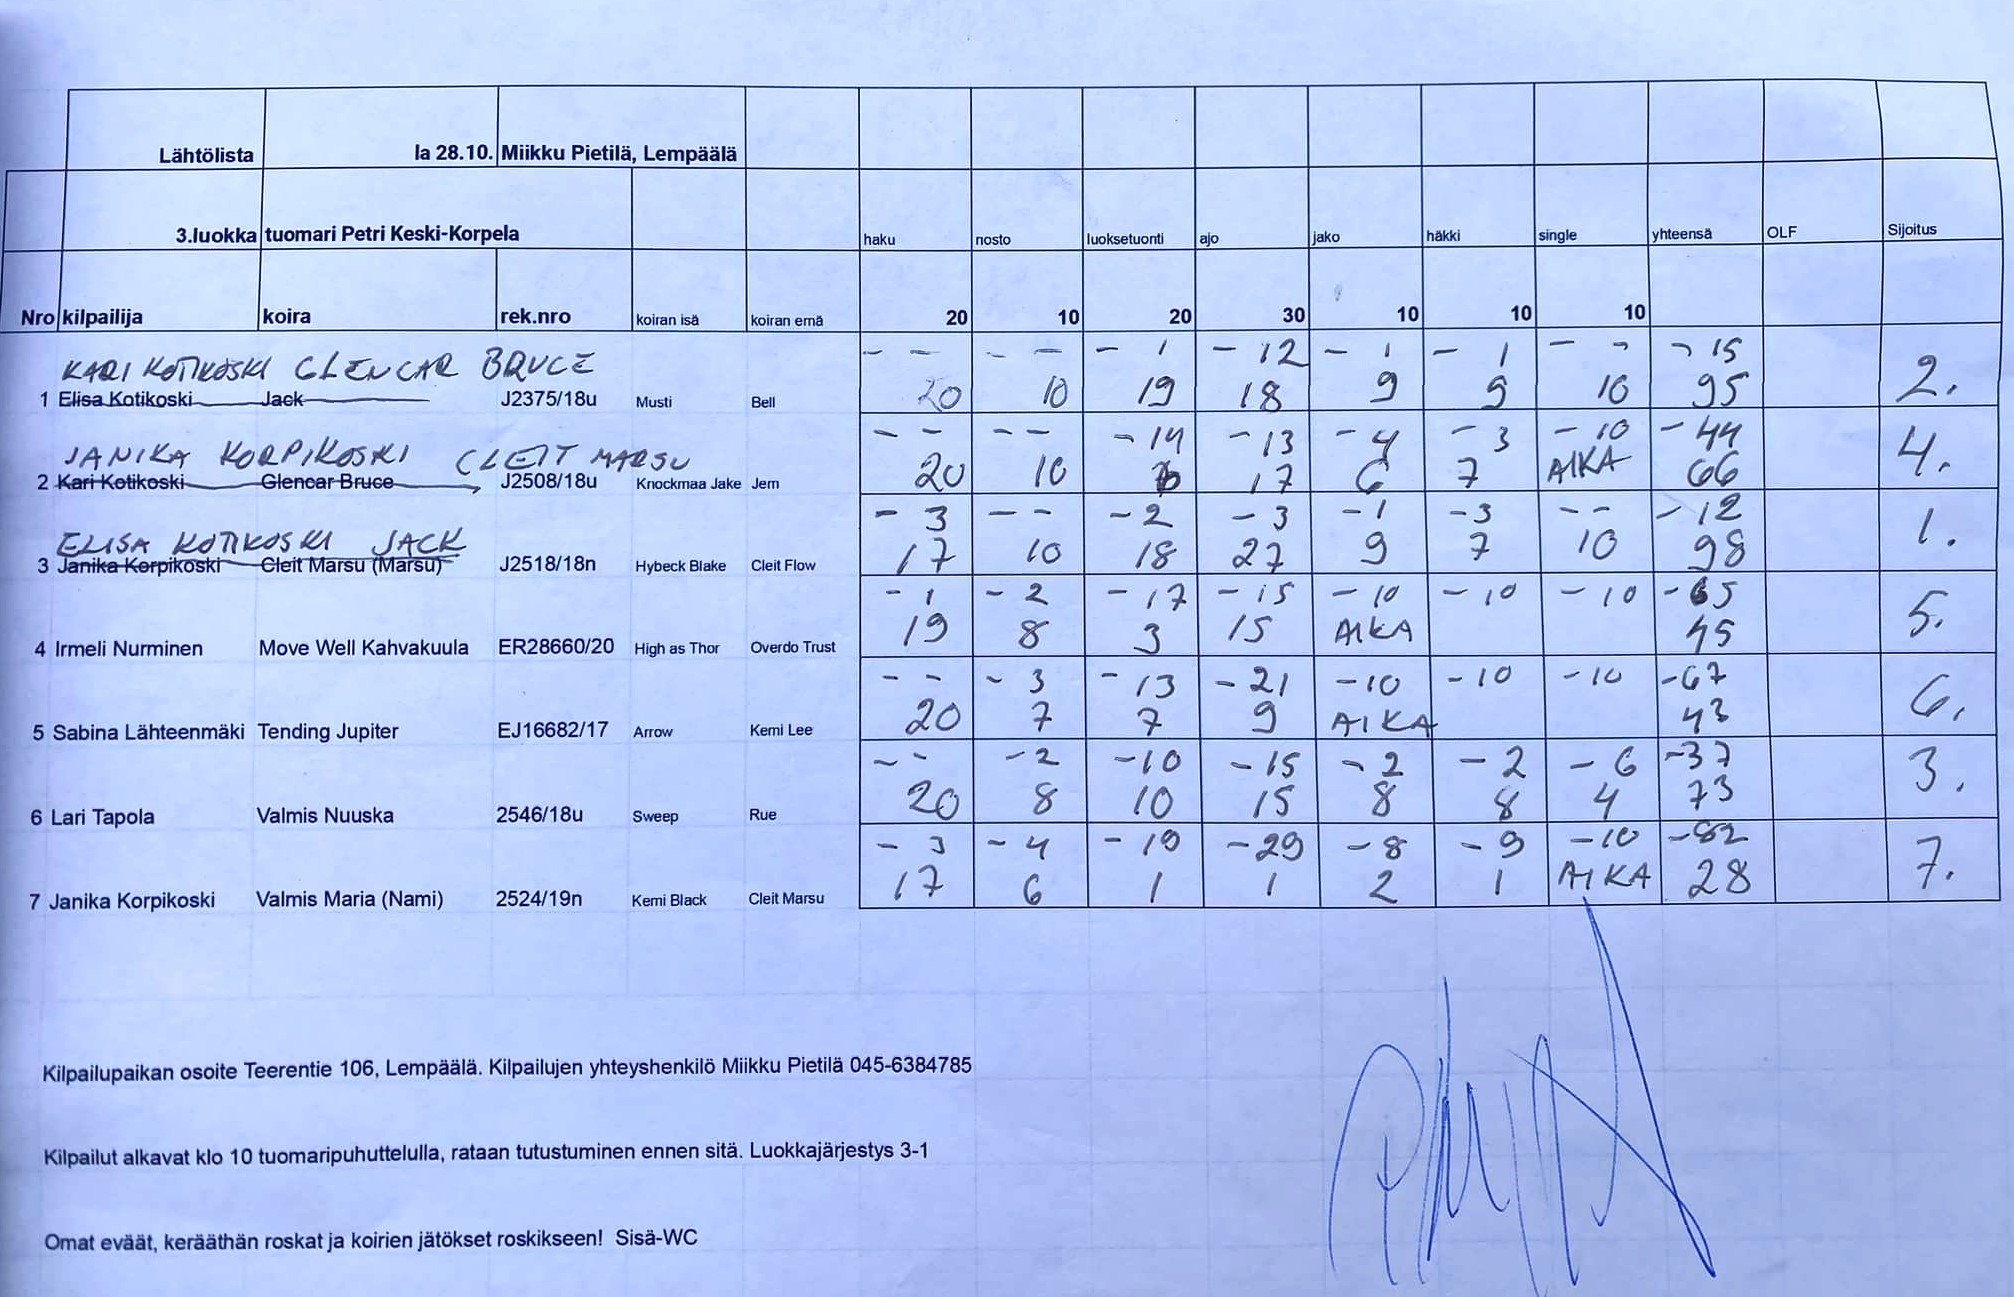 Lähtölista la 28.10. Miikku Pietilä, Lempäälä
3.luokka tuomari Petri Keski-Korpela haku nosto luoksetuonti ajo jako häkki single yhteensä OLF Sijoitus
Nro kilpailija koira rek.nro koiran isä koiran emä 20 10 20 30 10 10 10
KARI KOTIKOSKI GLENCAR BRUCE - - - - - 1 - 12 - 1 - 1 - - - 15
1 Elisa Kotikoski Jack J2375/18u Musti Bell 20 10 19 18 9 9 10 95 2.
JANIKA KORPIKOSKI CLEIT MARSU - - - - - 14 - 13 - 4 - 3 - 10 - 44
2 Kari Kotikoski Glencar Bruce J2508/18u Knockmaa Jake Jem 20 10 6 17 6 7 AIKA 66 4.
ELISA KOTIKOSKI JACK - 3 - - - 2 - 3 - 1 - 3 - - - 12
3 Janika Korpikoski Cleit Marsu (Marsu) J2518/18n Hybeck Blake Cleit Flow 17 10 18 27 9 7 10 98 1.
- 1 - 2 - 17 - 15 - 10 - 10 - 10 - 65
4 Irmeli Nurminen Move Well Kahvakuula ER28660/20 High as Thor Overdo Trust 19 8 3 15 AIKA 45 5.
- - - 3 - 13 - 21 - 10 - 10 - 10 - 67
5 Sabina Lähteenmäki Tending Jupiter EJ16682/17 Arrow Kemi Lee 20 7 7 9 AIKA 43 6.
- - - 2 - 10 - 15 - 2 - 2 - 6 - 37
6 Lari Tapola Valmis Nuuska 2546/18u Sweep Rue 20 8 10 15 8 8 4 73 3.
- 3 - 4 - 19 - 29 - 8 - 9 - 10 - 82
7 Janika Korpikoski Valmis Maria (Nami) 2524/19n Kemi Black Cleit Marsu 17 6 1 1 2 1 AIKA 28 7.
Kilpailupaikan osoite Teerentie 106, Lempäälä. Kilpailujen yhteyshenkilö Miikku Pietilä 045-6384785
Kilpailut alkavat klo 10 tuomaripuhuttelulla, rataan tutustuminen ennen sitä. Luokkajärjestys 3-1
Omat eväät, kerääthän roskat ja koirien jätökset roskikseen! Sisä-WC